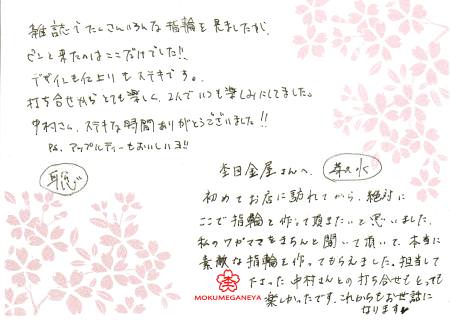 雑誌でたくさんいろんな指輪を見ましたが、
ピンと来たのはここだけでした!!
デザインも仕上りもステキです。
打ち合せからとても楽しく、2人でいつも楽しみにしてました。
中村さん、ステキな時間ありがとうございました!!
P.S. アップルティーもおいしいヨ!!
聡
杢目金屋さんへ
初めてお店に訪れてから、絶対に
ここで指輪を作って頂きたいと思いました。
私のワガママをきちんと聞いて頂いて、本当に
素敵な指輪を作ってもらえました。担当して
下さった中村さんとの打ち合せもとっても
楽しかったです。これからもお世話に
なります♥
MOKUMEGANEYA